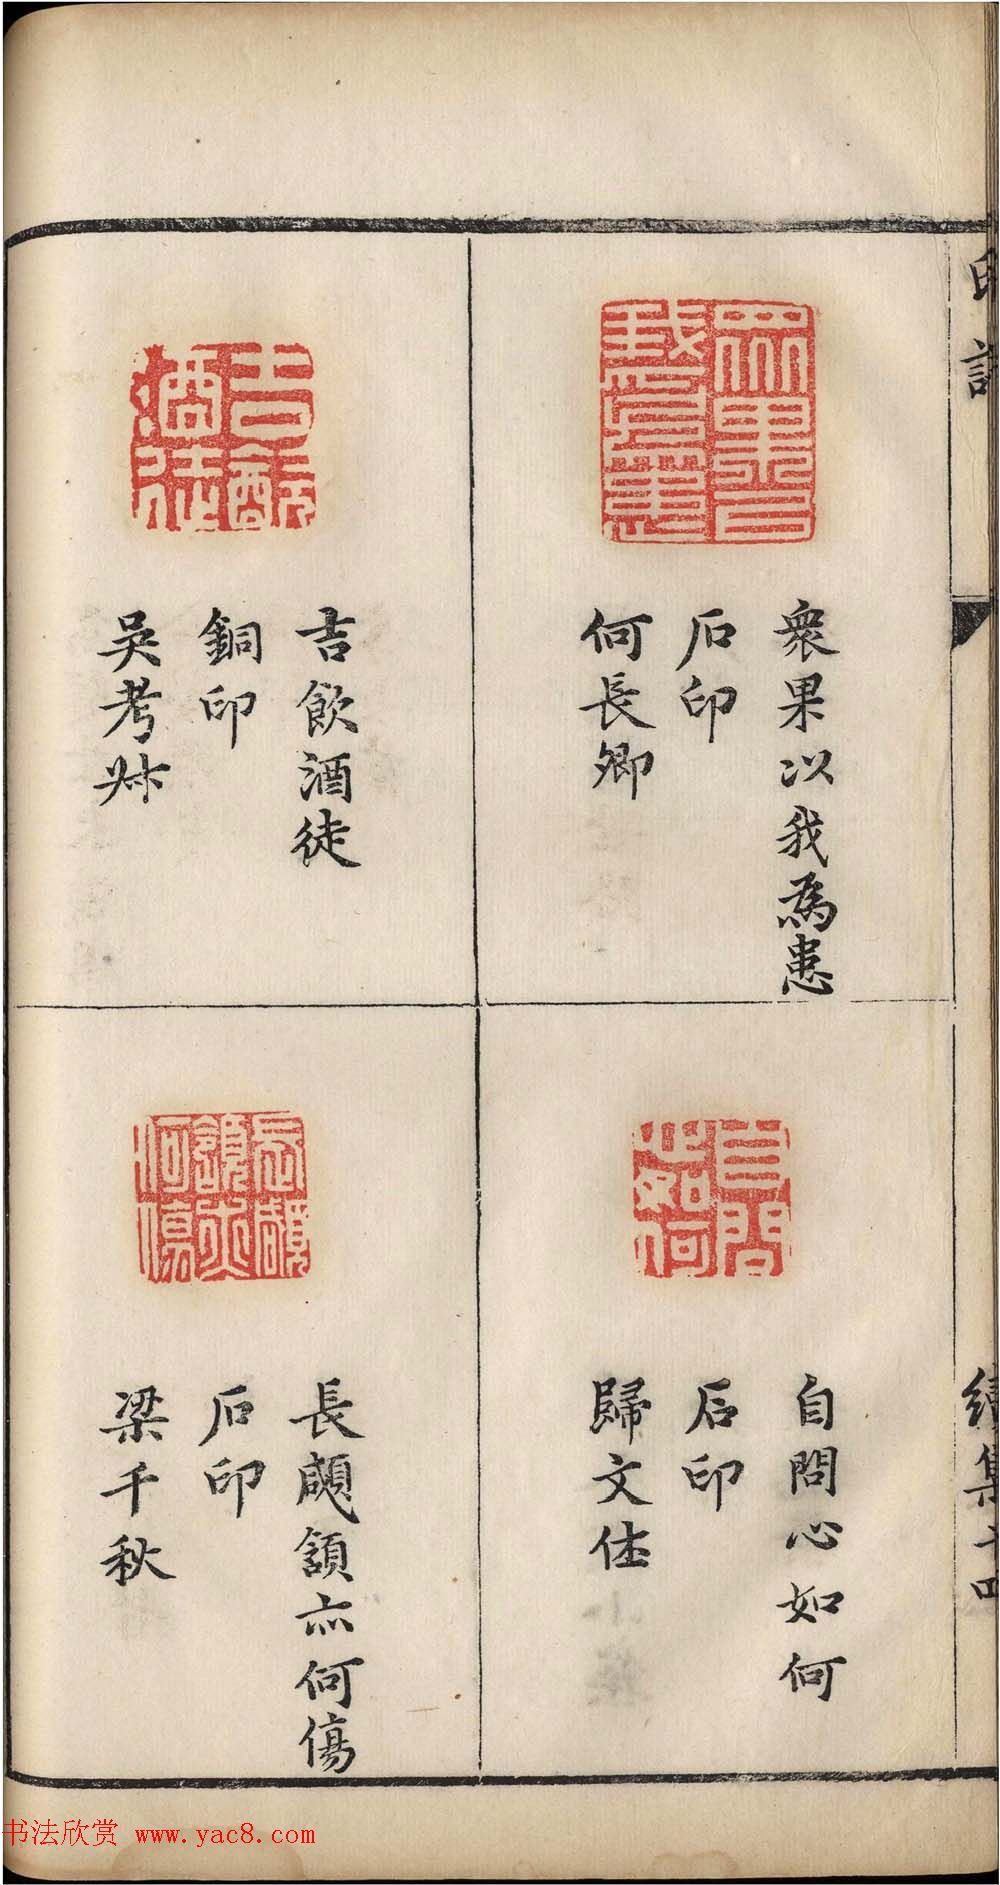 衆果以我為患
石印
何長卿
自問心如何
石印
歸文休
吉飲酒徒
銅印
吳考叔
長顑頷亦何傷
石印
梁千秋
书法欣赏 www.yac8.com